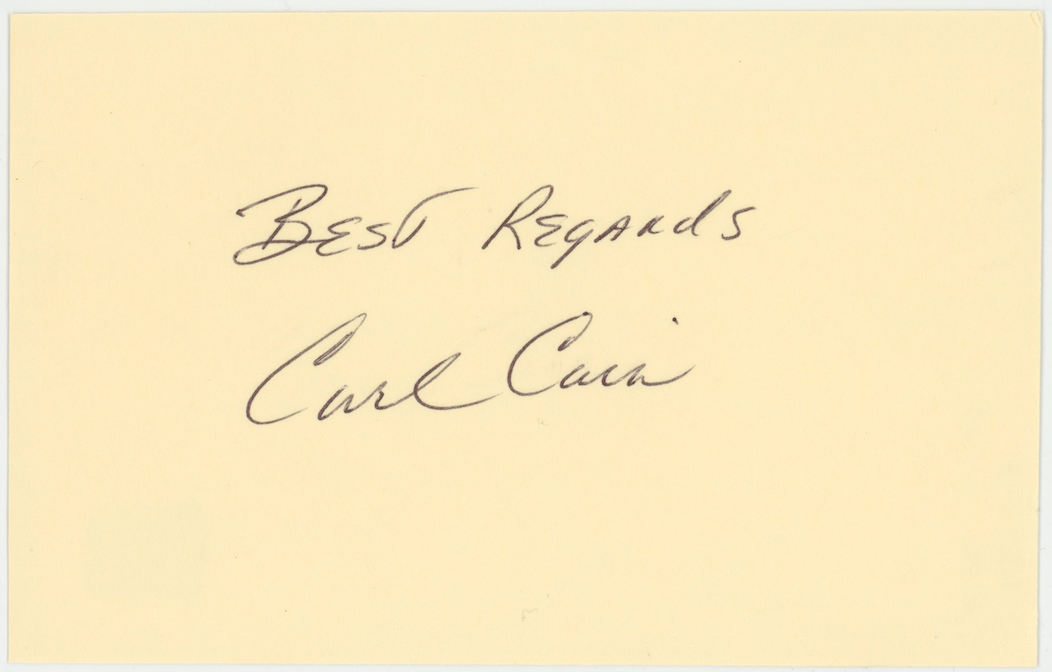 Best Regards
Carl Cain